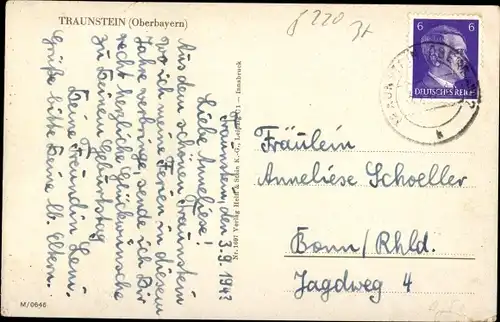 TRAUNSTEIN (Oberbayern)
6 6
DEUTSCHES REICH
Traunstein, den 3.9.1943
Liebe Anneliese!
Aus dem schönen Traunstein
wo ich meine Ferien in diesem
Jahre verbringe, sende ich Dir
recht herzliche Glückwünsche
zu Deinem Geburtstag
Deine Freundin Leni.
Grüße bitte Deine lb. Eltern.
Nr. 1607 Verlag Held & Sohn K.-G., Leipzig C1 — Innsbruck
Fräulein
Anneliese Schoeller
Bonn/Rhld.
Jagdweg 4
M/0646